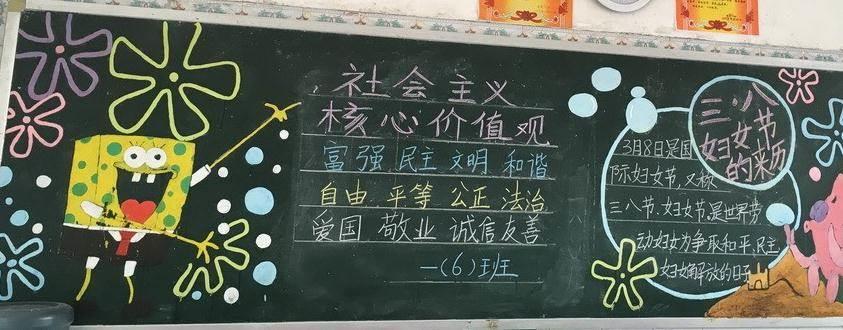 社会主义
核心价值观
富强 民主 文明 和谐
自由 平等 公正 法治
爱国 敬业 诚信 友善
一(6)班
三·八
妇女节
的来历
3月8日是国
际妇女节,又称
三八节.妇女节.是世界劳
动妇女为争取和平、民主
妇女解放的日子